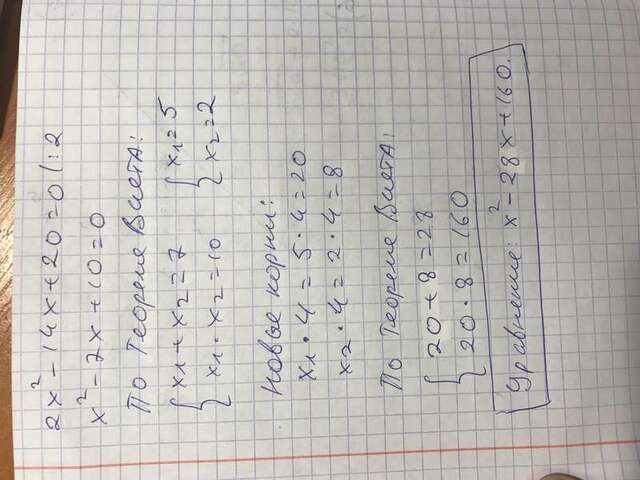 2x² - 14x + 20 = 0 | : 2
x² - 7x + 10 = 0
По Теореме Виета:
{ x1 + x2 = 7 { x1 = 5
{ x1 · x2 = 10 { x2 = 2
Новые корни:
x1 · 4 = 5 · 4 = 20
x2 · 4 = 2 · 4 = 8
По Теореме Виета:
{ 20 + 8 = 28
{ 20 · 8 = 160
Уравнение: x² - 28x + 160.